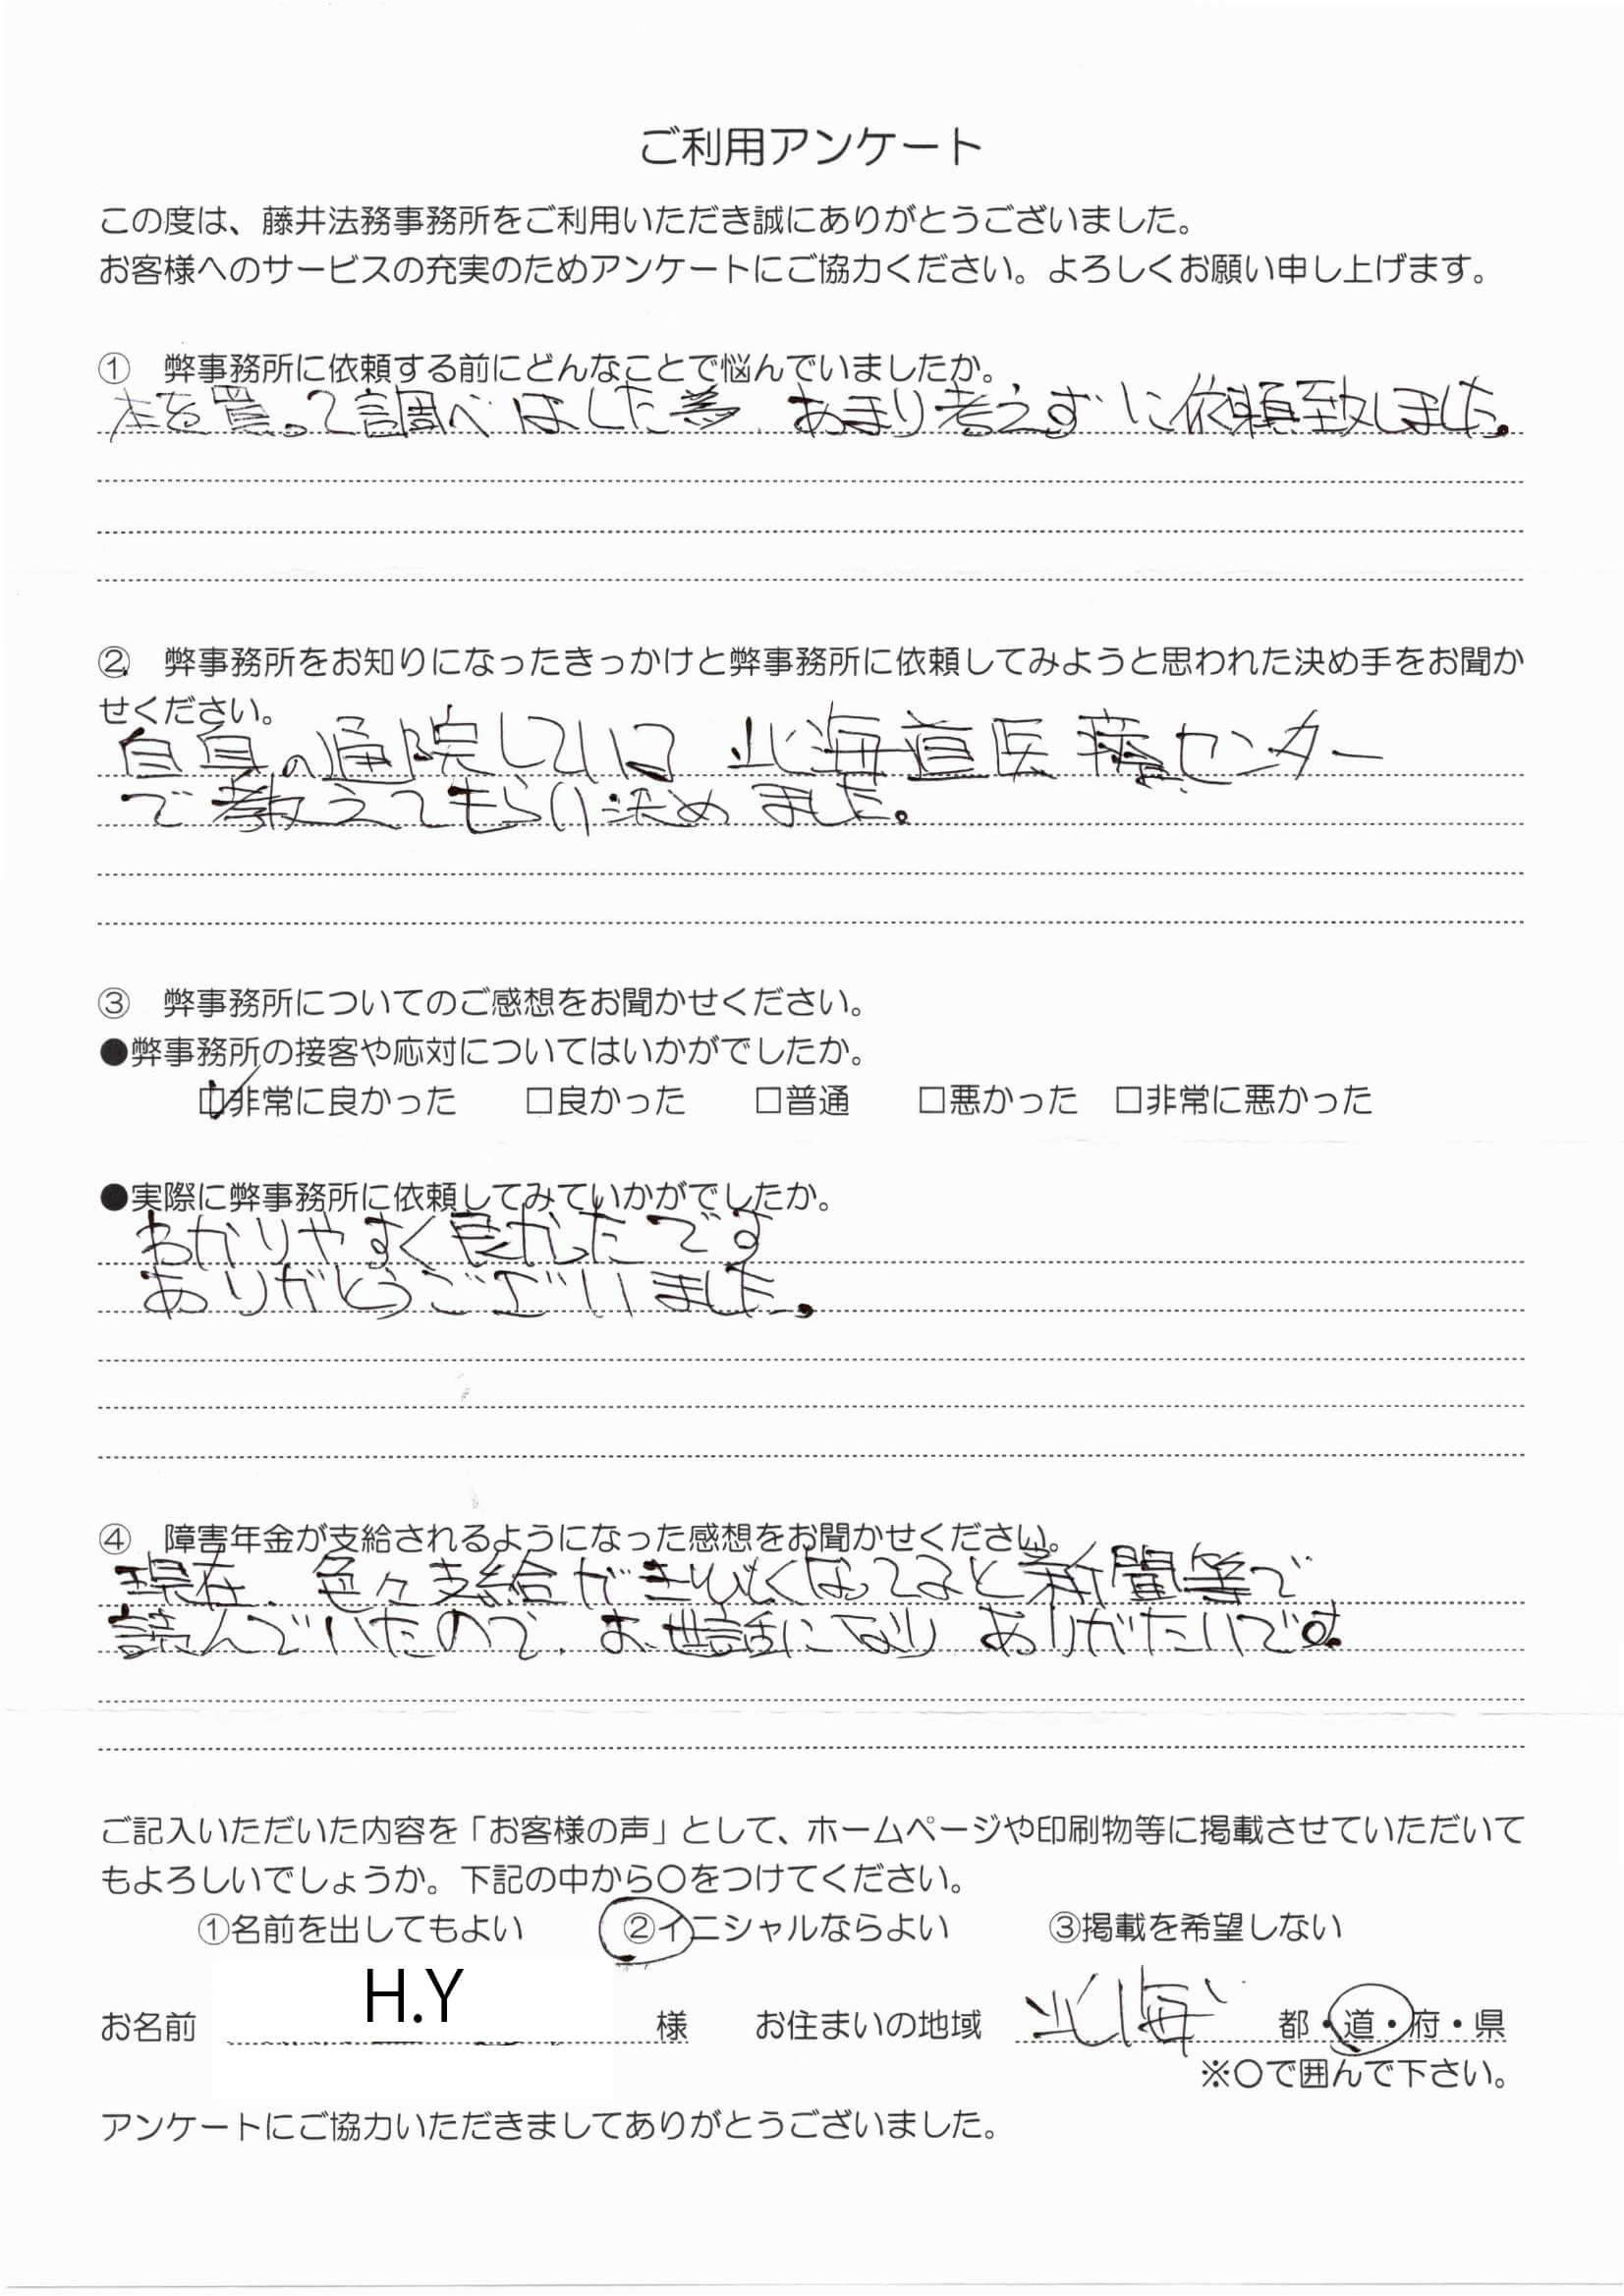 ご利用アンケート
この度は、藤井法務事務所をご利用いただき誠にありがとうございました。
お客様へのサービスの充実のためアンケートにご協力ください。よろしくお願い申し上げます。
① 弊事務所に依頼する前にどんなことで悩んでいましたか。
本を買って調べはした為、あまり考えずに依頼致しました。
② 弊事務所をお知りになったきっかけと弊事務所に依頼してみようと思われた決め手をお聞か
せください。
自身の通院している 北海道医療センター
で教えてもらい決めました。
③ 弊事務所についてのご感想をお聞かせください。
●弊事務所の接客や応対についてはいかがでしたか。
☑非常に良かった □良かった □普通 □悪かった □非常に悪かった
●実際に弊事務所に依頼してみていかがでしたか。
わかりやすく良かったです
ありがとうございました。
④ 障害年金が支給されるようになった感想をお聞かせください。
現在、色々支給がきびしくなってると新聞等で
読んでいたので、お世話になり ありがたいです。
ご記入いただいた内容を「お客様の声」として、ホームページや印刷物等に掲載させていただいて
もよろしいでしょうか。下記の中から○をつけてください。
①名前を出してもよい ②イニシャルならよい ③掲載を希望しない
お名前 H.Y 様 お住まいの地域 北海 都・道・府・県
※○で囲んで下さい。
アンケートにご協力いただきましてありがとうございました。